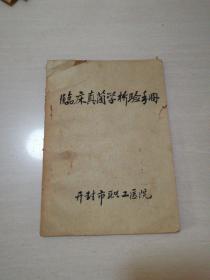 临床真菌学检验手册
开封市职工医院